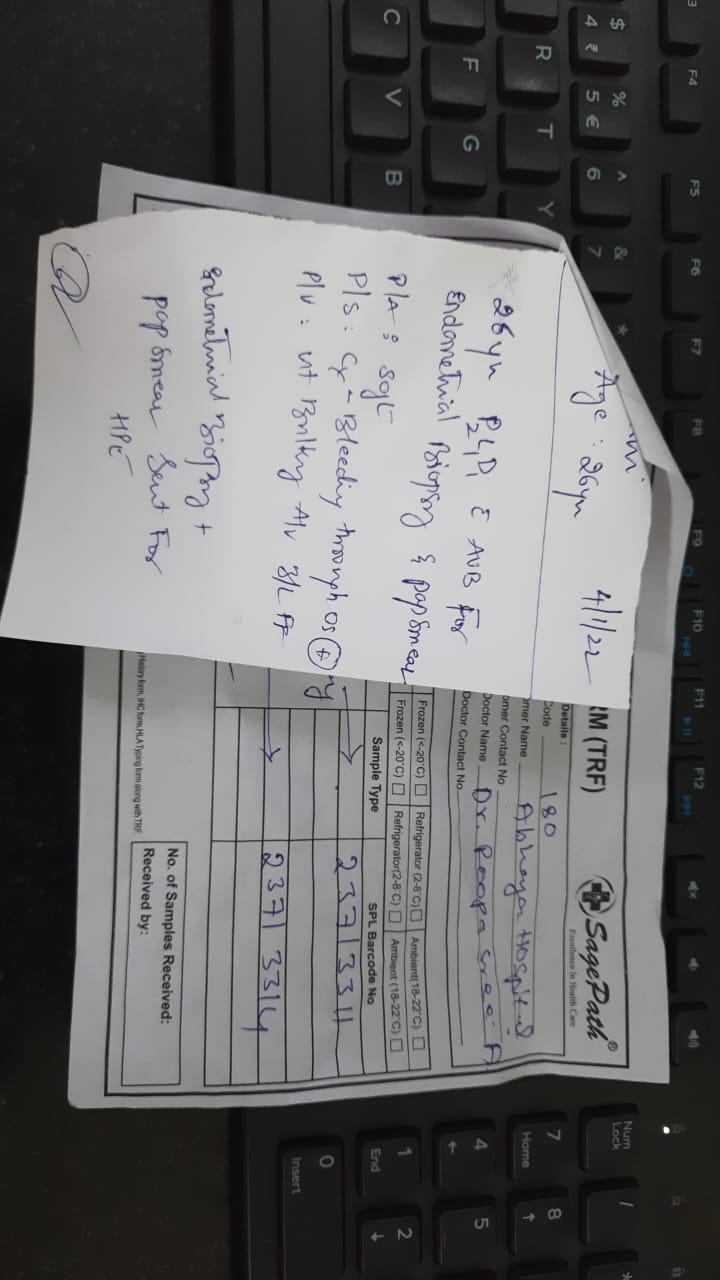 4/1/22
Age : 26yr
26yr P2L2D1 c AUB For
Endometrial Biopsy & papsmear
P/A : soft
P/S : Cx - Bleeding through os +
P/V : ut Bulky A/V B/L FF
Endometrial Biopsy +
papsmear Sent For
HPE
RM (TRF)
SagePath®
Excellence In Health Care
Details :
Code 180
omer Name Abhaya Hospital
omer Contact No
Doctor Name Dr. Roopa sree. A
Doctor Contact No.
Frozen (<-20°C) Refrigerator (2-8°C) Ambient(18-22°C)
Frozen (<-20°C) Refrigerator(2-8°C) Ambient (18-22°C)
Sample Type SPL Barcode No
23713311
23713314
History form, IHC form, HLA Typing form along with TRF
No. of Samples Received:
Received by:
F4 F5 F6 F7 F8 F9 F10 F11 F12
$ % ^ & *
4 ₹ 5 € 6 7
R T Y
F G
C V B
Num Lock /
7 Home 8
4 5
1 End 2
0 Insert